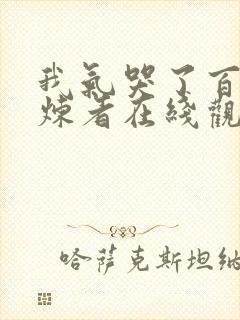 我氣哭了百
煉者在綫觀
哈萨克斯坦纳